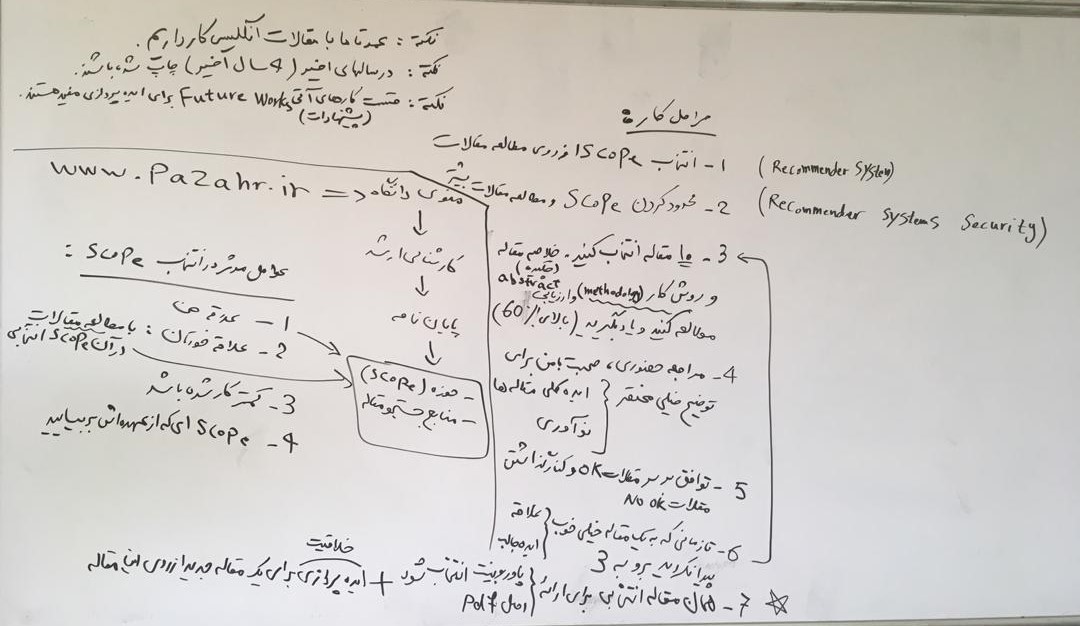 نکته : عمدتا ما با مقالات انگلیسی کار داریم.
نکته : در سالهای اخیر (4 سال اخیر) چاپ شده باشد.
نکته : قسمت کارهای آتی Future Works برای ایده پردازی مفید هستند.
(پیشنهادات)
مراحل کار :
1 - انتخاب Scope از روی مطالعه مقالات (Recommender System)
2 - محدود کردن Scope و مطالعه مقالات بیشتر (Recommender Systems Security)
3 - 10 مقاله انتخاب کنید. خلاصه مقاله
(چکیده)
abstract
و روش کار (methodology) و ارزیابی
مطالعه کنید و یاد بگیرید (بالای 60%)
4 - مراجعه حضوری، صحبت با من برای
توضیح خیلی مختصر } ایده کلی مقاله ها
نوآوری
5 - توافق بر سر مقالات ok و کنار گذاشتن
مقالات No ok
6 - تا زمانی که به یک مقاله خیلی خوب } علاقه
ایده جالب
پیدا نکردید برو به 3
7 - همان مقاله انتخابی برای ارائه } پاورپوینت انتخاب شود + ایده پردازی برای یک مقاله جدید از روی این مقاله
اصل Pdf
خلاقیت
www.Pazahr.ir <= منوی دانشگاه
↓
کارشناسی ارشد
↓
پایان نامه
↓
- حوزه (Scope)
- منابع جستجو مقاله
عوامل موثر در انتخاب Scope :
1 - علاقه من
2 - علاقه خودتان : با مطالعه مقالات
در آن Scope انتخابی
3 - کمتر کار شده باشد
4 - Scope ای که از عهده اش بر بیایید